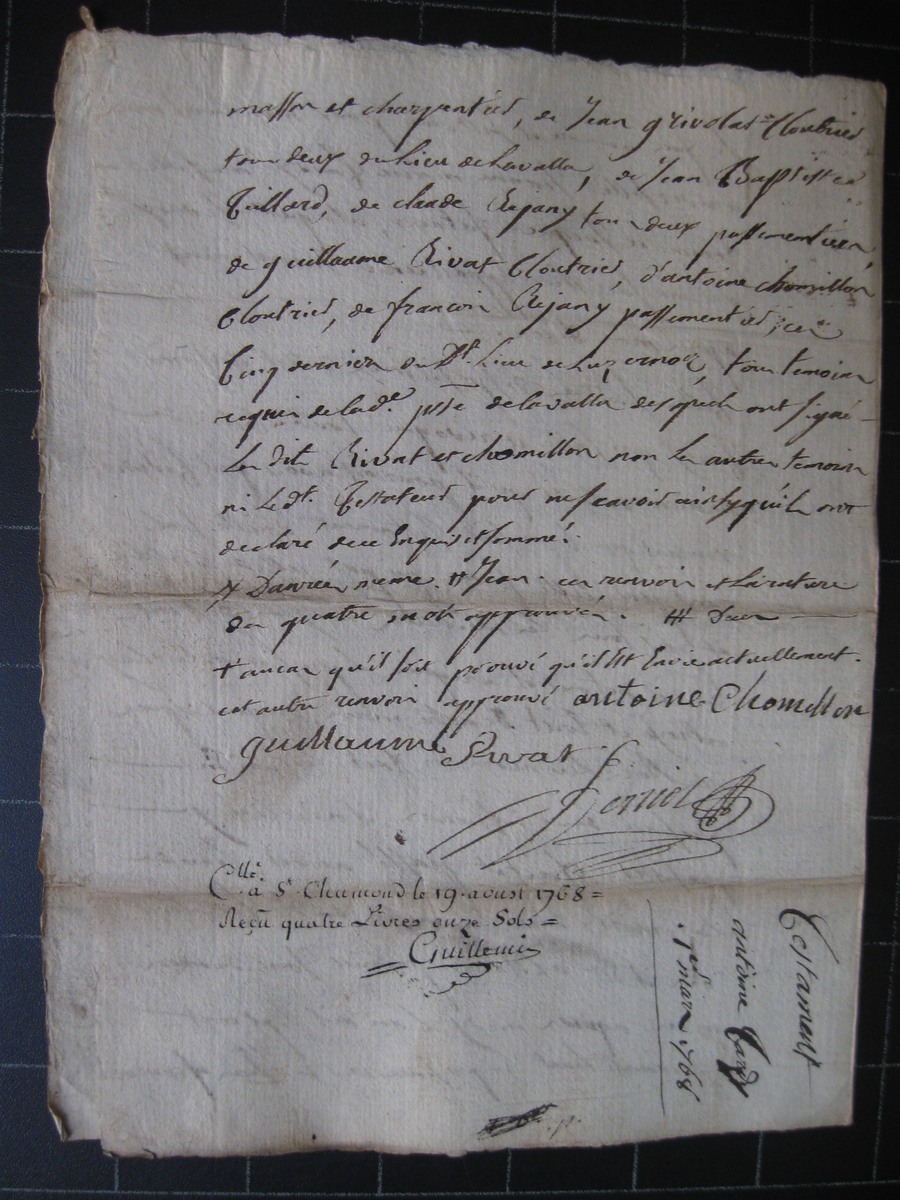 masson et charpentier, de Jean grivolas Cloutrier
tous deux du lieu de Lavalla, de Jean Baptiste
de claude Rejany tous deux passementiers,
de guillaume Rivat Cloutrier, d'antoine chomillon
Cloutrier, de francois Rejany passementier, ces
Cinq derniers du Dt. Lieu de tous temoins
requis de lad.e psse de lavalla desquels ont signé
Les dits Rivat et chomillon non les autres temoins
ni Le dt. Testateur pour ne scavoir ainsy qu'ils ont
declaré de ce Enquis et sommé.
meme. # Jean. ces renvois et La rature
des quatre mots approuvés. ##
+ aucas qu'il soit prouvé qu'il Est En vie actuellement.
cet autre renvoi approuvé antoine Chomillon
guillaume Rivat
C.llé à St. Chamond le 19. aoust 1768 =
Reçu quatre Livres onze Sols =
Guillemin
Testament
antoine Tardy
1er mars 1768